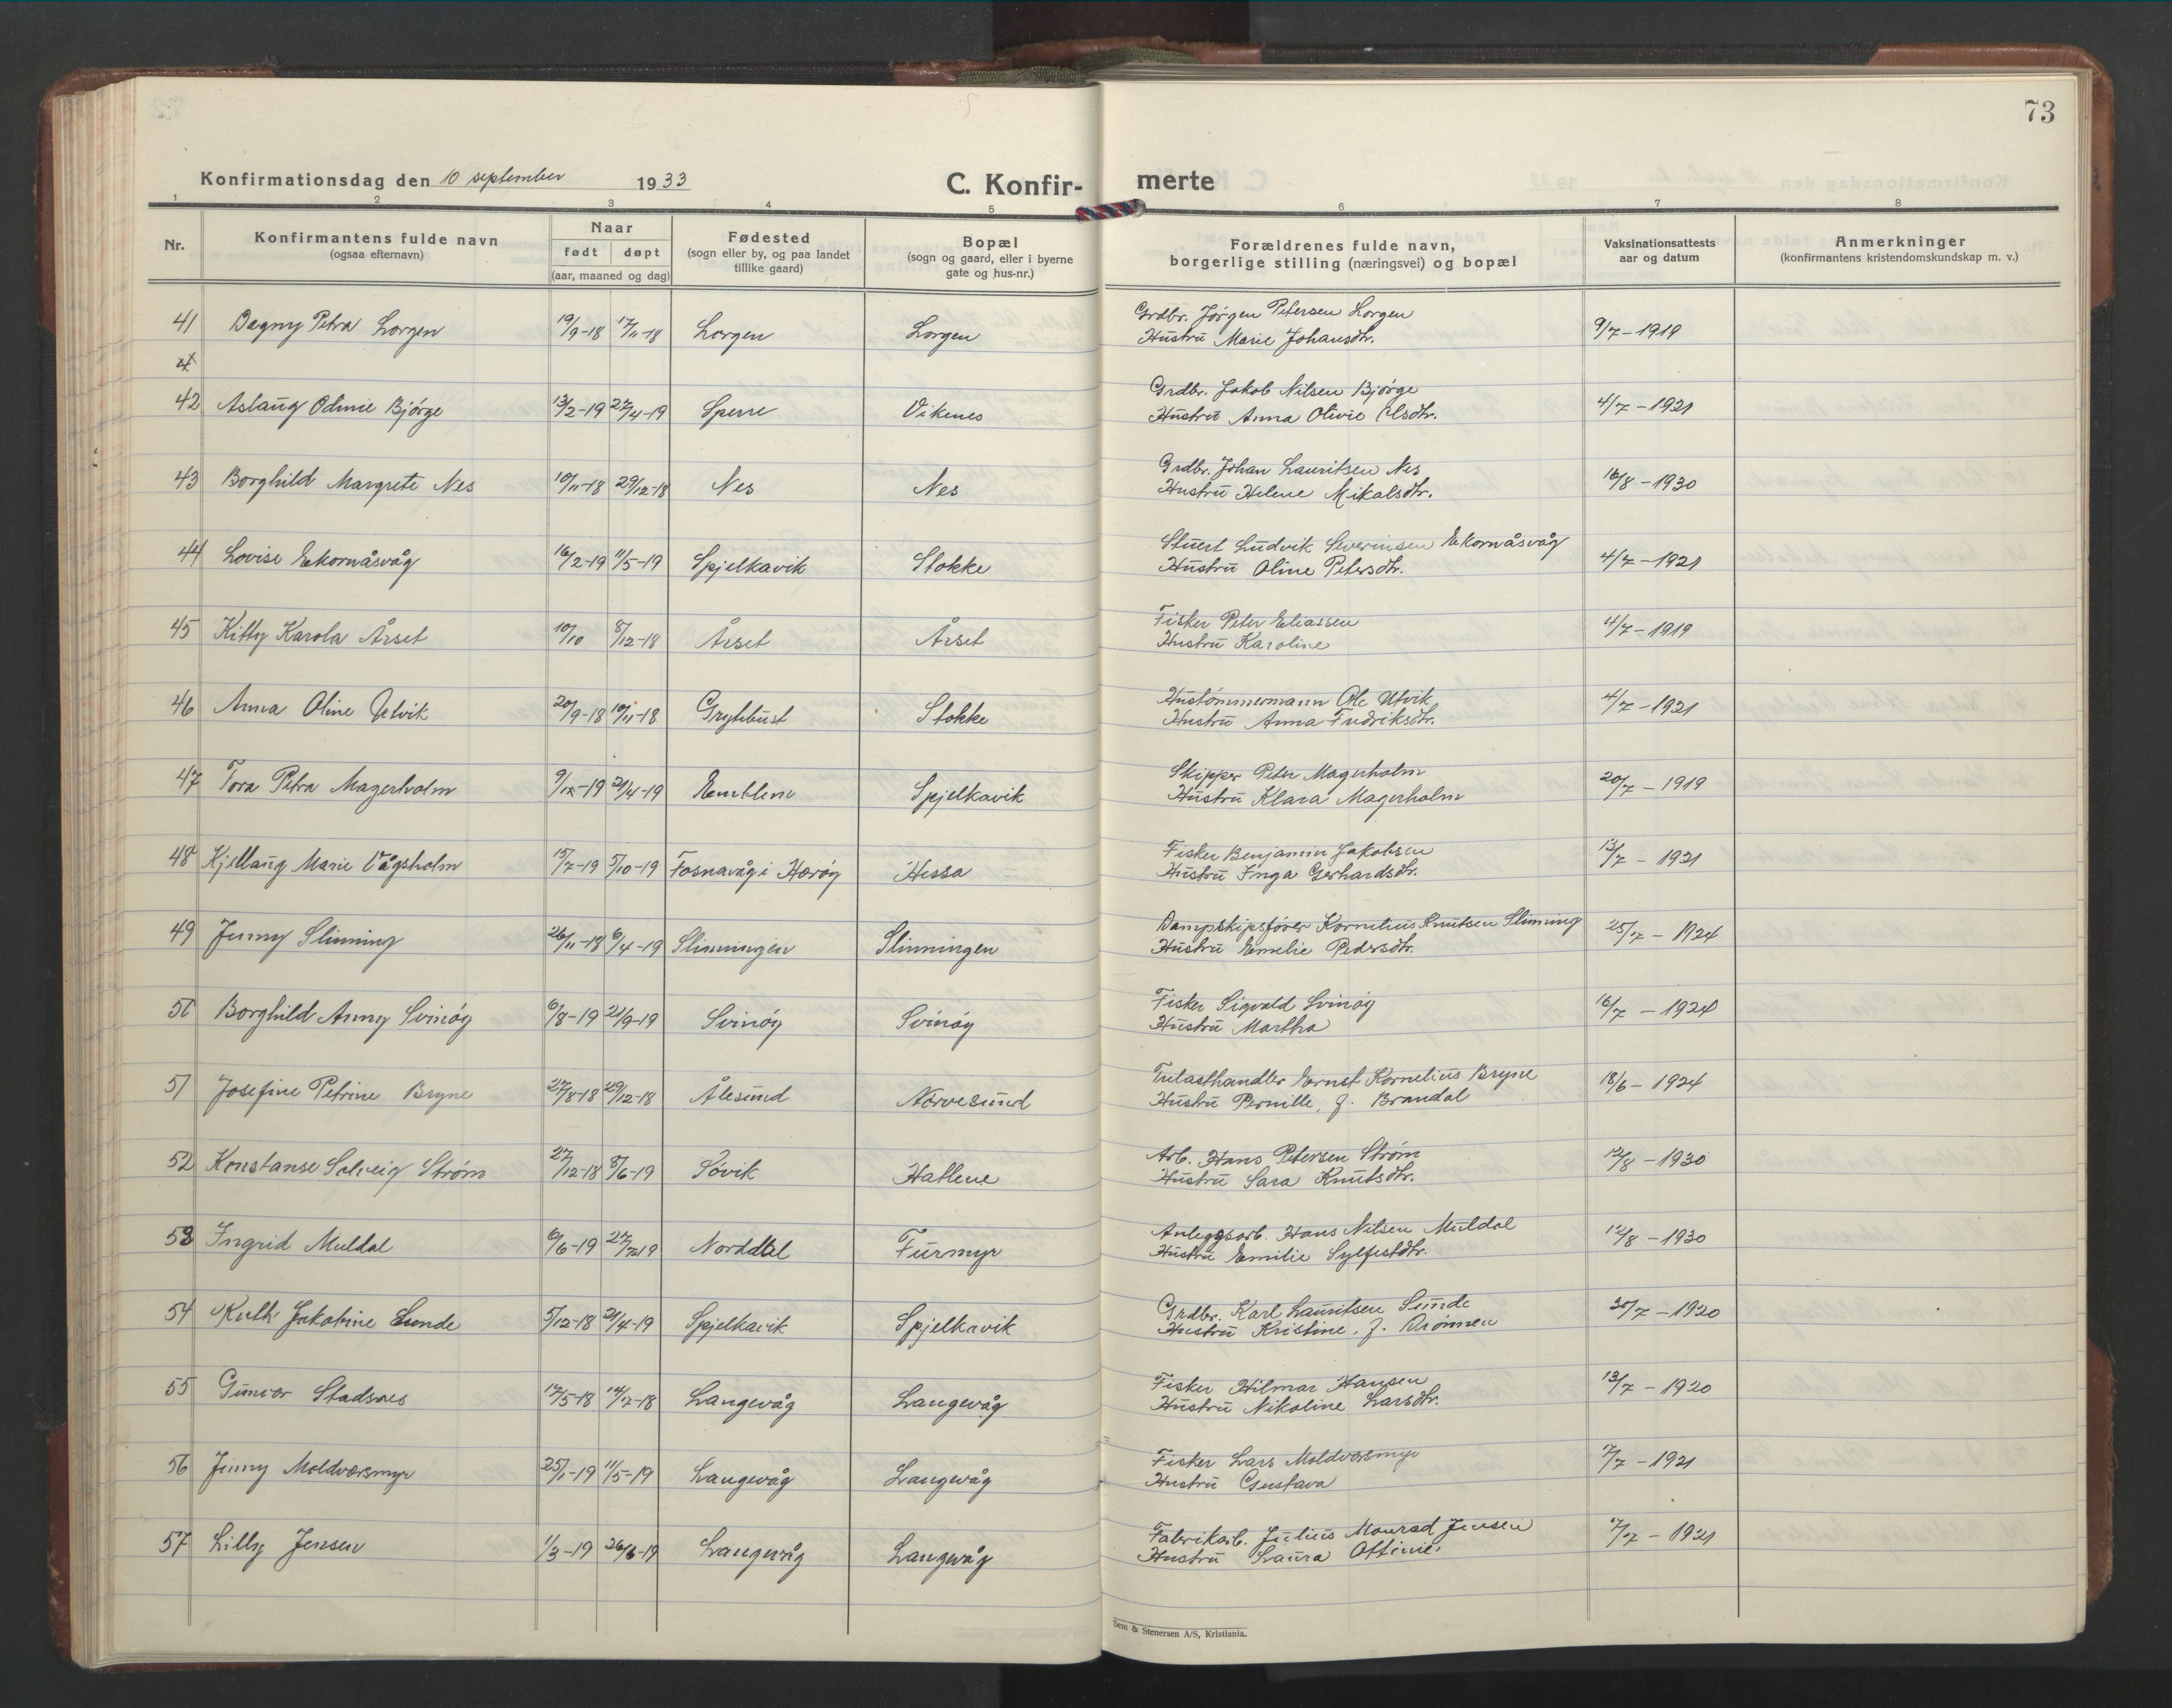 73
Konfirmationsdag den 10 september 1933
C. Konfir- merte
1 2 3 4 5 6 7 8
Nr.
Konfirmantens fulde navn
(ogsaa efternavn)
Naar
født døpt
(aar, maaned og dag)
Fødested
(sogn eller by, og paa landet
tillike gaard)
Bopæl
(sogn og gaard, eller i byerne
gate og hus-nr.)
Forældrenes fulde navn,
borgerlige stilling (næringsvei) og bopæl
Vaksinationsattests
aar og datum
Anmerkninger
(konfirmantens kristendomskundskap m. v.)
41 Dagny Petra Lorgen 19/9-18 17/11-18 Lorgen Lorgen Grdbr. Jørgen Petersen Lorgen
Hustru Marie Johansdtr. 9/7-1919
42 Aslaug Odinie Bjørge 13/2-19 27/4-19 Sperre Vikenes Grdbr. Jakob Nilsen Bjørge
Hustru Anna Olivie Olsdtr. 4/7-1921
43 Borghild Margrete Nes 10/11-18 29/12-18 Nes Nes Grdbr. Johan Lauritsen Nes
Hustru Helene Mikalsdtr. 16/8-1930
44 Lovise Ekornåsvåg 16/2-19 11/5-19 Spjelkavik Stokke Stuert Ludvik Severinsen Ekornåsvåg
Hustru Oline Petersdtr. 4/7-1921
45 Kitty Karola Årset 10/10 8/12-18 Årset Årset Fisker Peter Eliassen
Hustru Karoline 4/7-1919
46 Anna Oline Utvik 20/9-18 10/11-18 Grytebust Stokke Hustømmermann Ole Utvik
Hustru Anna Fredriksdtr. 4/7-1921
47 Tora Petra Magerholm 21/4-19 Emblem Spjelkavik Skipper Peter Magerholm
Hustru Klara Magerholm 20/7-1919
48 Kjellaug Marie Vågsholm 15/7-19 5/10-19 Fosnavåg i Herøy Hessa Fisker Benjamin Jakobsen
Hustru Inga Gerhardsdtr. 13/7-1921
49 Jenny Slinning 26/11-18 6/4-19 Slinningen Slinningen Dampskipsfører Kornelius Knutsen Slinning
Hustru Emelie Pedersdtr. 25/7-1924
50 Borghild Anny Svinøy 6/8-19 21/9-19 Svinøy Svinøy Fisker Sigvald Svinøy
Hustru Martha 16/7-1924
51 Josefine Petrine Bryne 27/8-18 29/12-18 Ålesund Nørvesund Trelasthandler Ernst Kornelius Bryne
Hustru Pernille, f. Brandal 18/6-1924
52 Konstanse Solveig Strøm 27/12-18 8/6-19 Søvik Hatlene Arb. Hans Petersen Strøm
Hustru Sara Knutsdtr. 12/8-1930
53 Ingrid Muldal 6/6-19 27/7-19 Norddal Furmyr Anleggsarb. Hans Nilsen Muldal
Hustru Emilie Sylfestdtr. 12/8-1930
54 Ruth Jakobine Sunde 5/12-18 21/4-19 Spjelkavik Spjelkavik Grdbr. Karl Lauritsen Sunde
Hustru Kristine, f. Drønnen 30/7-1920
55 Gunvor Stadsnes 12/5-18 14/7-18 Langevåg Langevåg Fisker Hilmar Hansen
Hustru Nikoline Larsdtr. 13/7-1920
56 Jenny Moldværsmyr 25/1-19 11/5-19 Langevåg Langevåg Fisker Lars Moldværsmyr
Hustru Gustava 7/7-1921
57 Lilly Jensen 1/3-19 26/6-19 Langevåg Langevåg Fabrikarb. Julius Monrad Jensen
Hustru Laura Ottinie. 7/7-1921
Sem & Stenersen A/S, Kristiania.